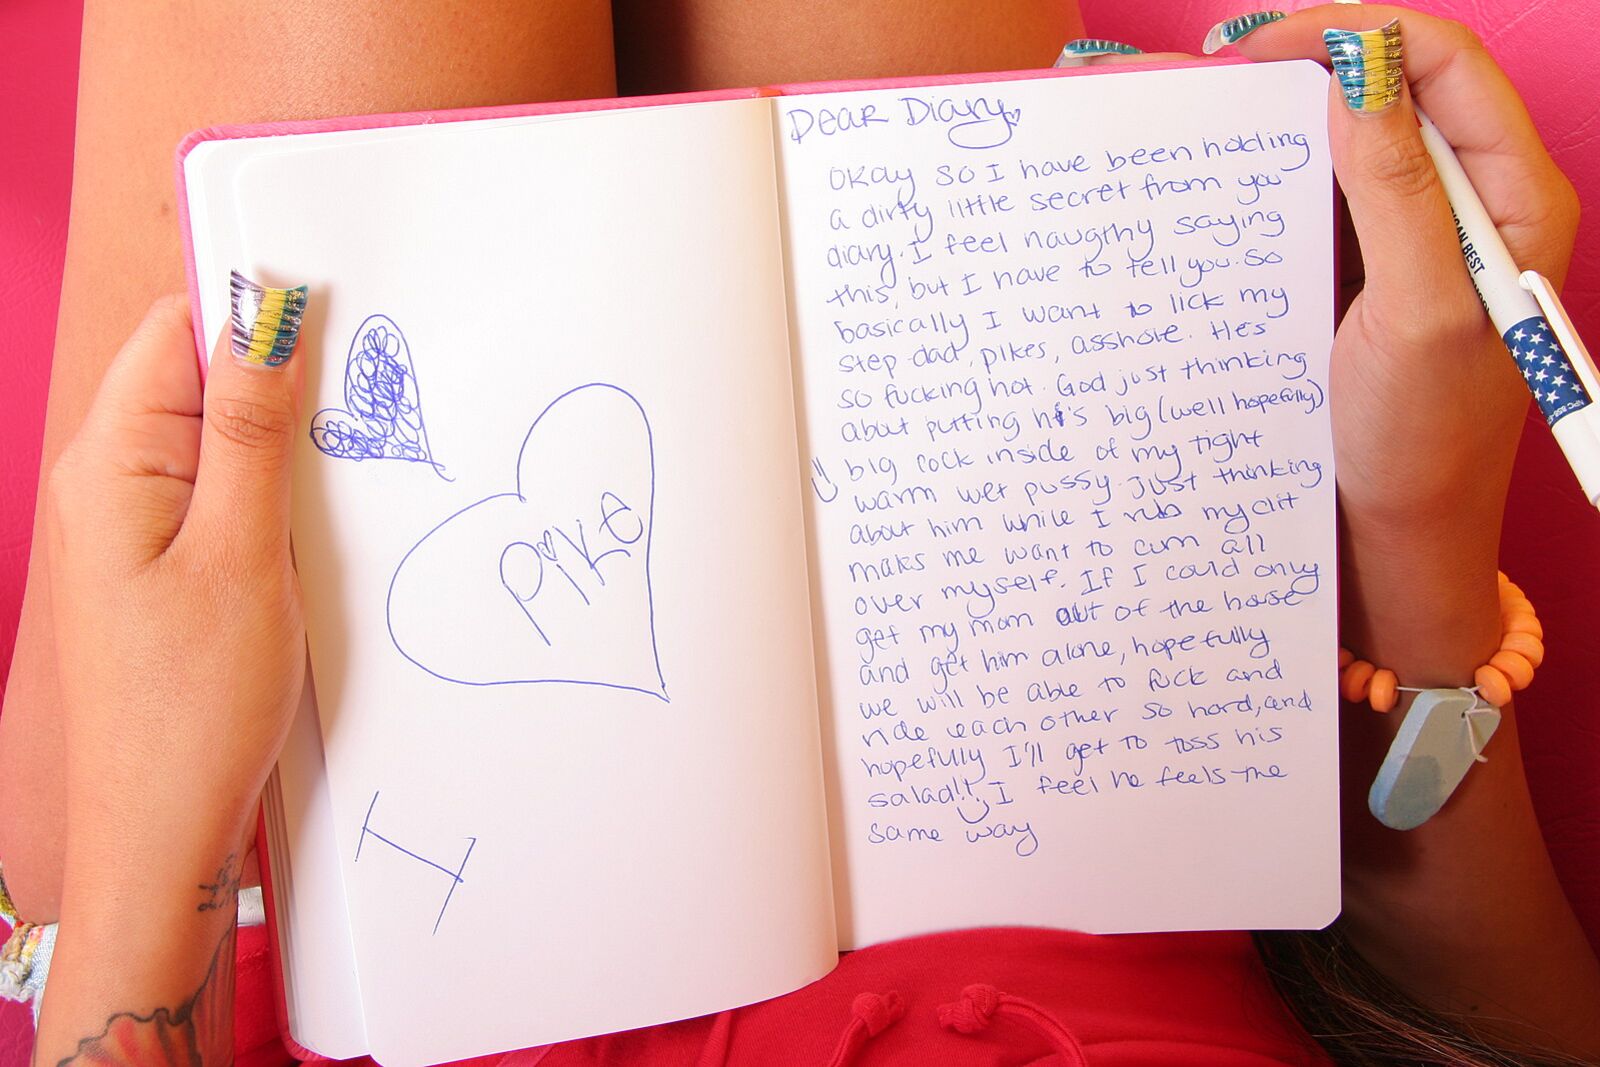 Pike
I
Dear Diary
Okay so I have been holding
a dirty little secret from you
diary. I feel naugthy saying
this, but I have to tell you. So
basically I want to lick my
step dad, pikes, asshole. He's
so fucking hot. God just thinking
about putting his big (well hopefully)
big cock inside of my tight
warm wet pussy. Just thinking
about him while I rub my clit
maks me want to cum all
over myself. If I could only
get my mom out of the house
and get him alone, hopefully
we will be able to fuck and
ride each other so hard, and
hopefully I'll get to toss his
salad!! I feel he feels the
same way
ICAN BEST